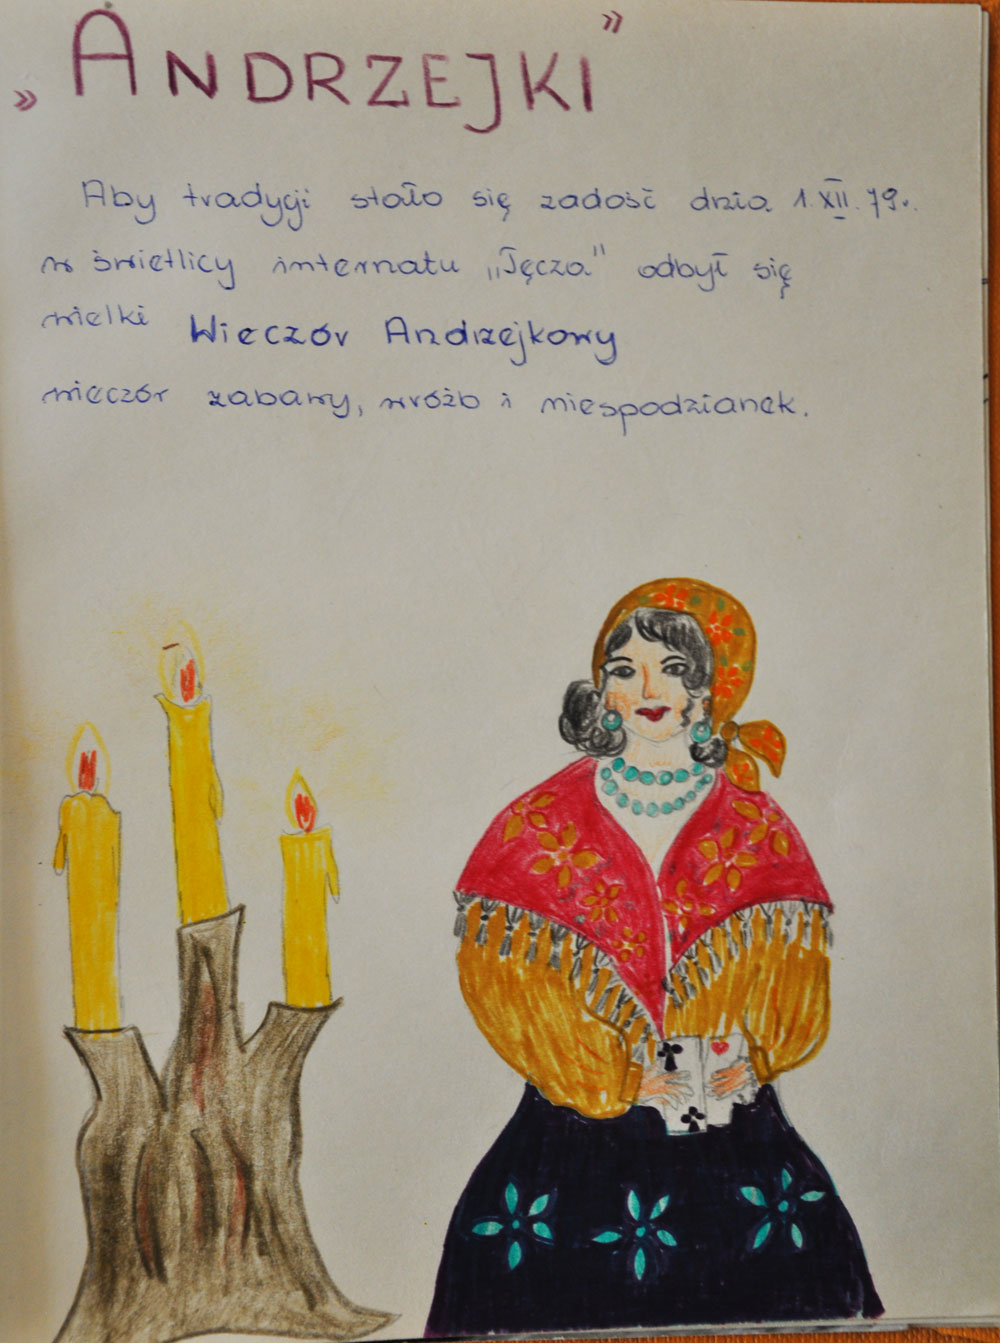 „ANDRZEJKI”
Aby tradycji stało się zadość dnia 1.XII.79r.
w świetlicy internatu „Tęcza” odbył się
wielki Wieczór Andrzejkowy
wieczór zabawy, wróżb i niespodzianek.